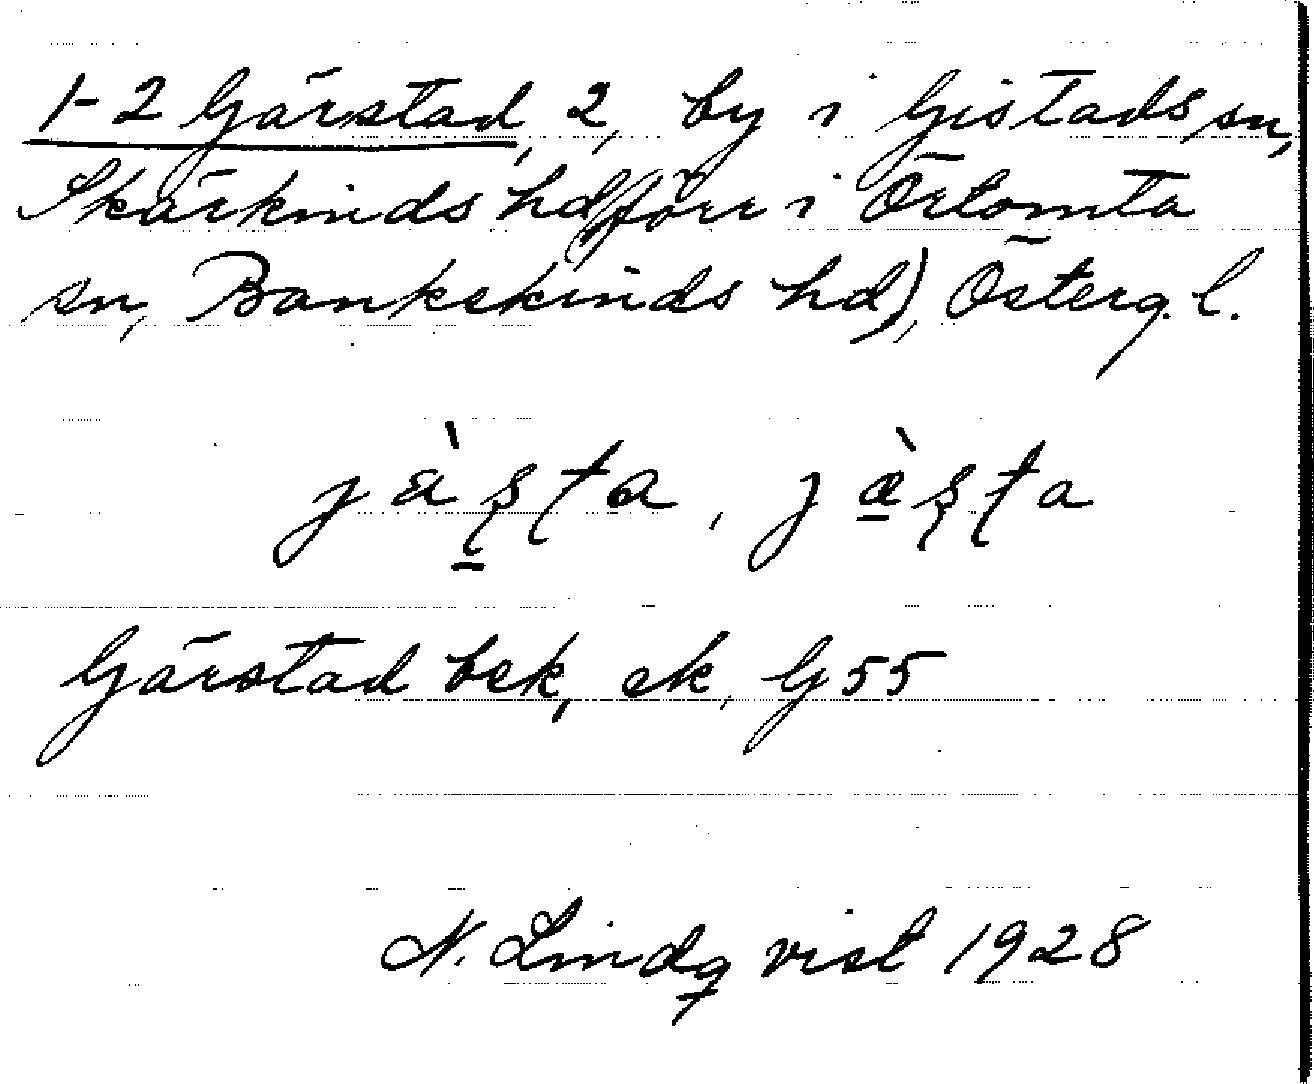 1-2 Gärstad, 2, by i Gistads sn,
Skärkinds hd (förr i Örtomta
sn, Bankekinds hd), Österg. l.
jàşta, jæ̀şta
Gärstad bek, ek, G 55
N. Lindqvist 1928